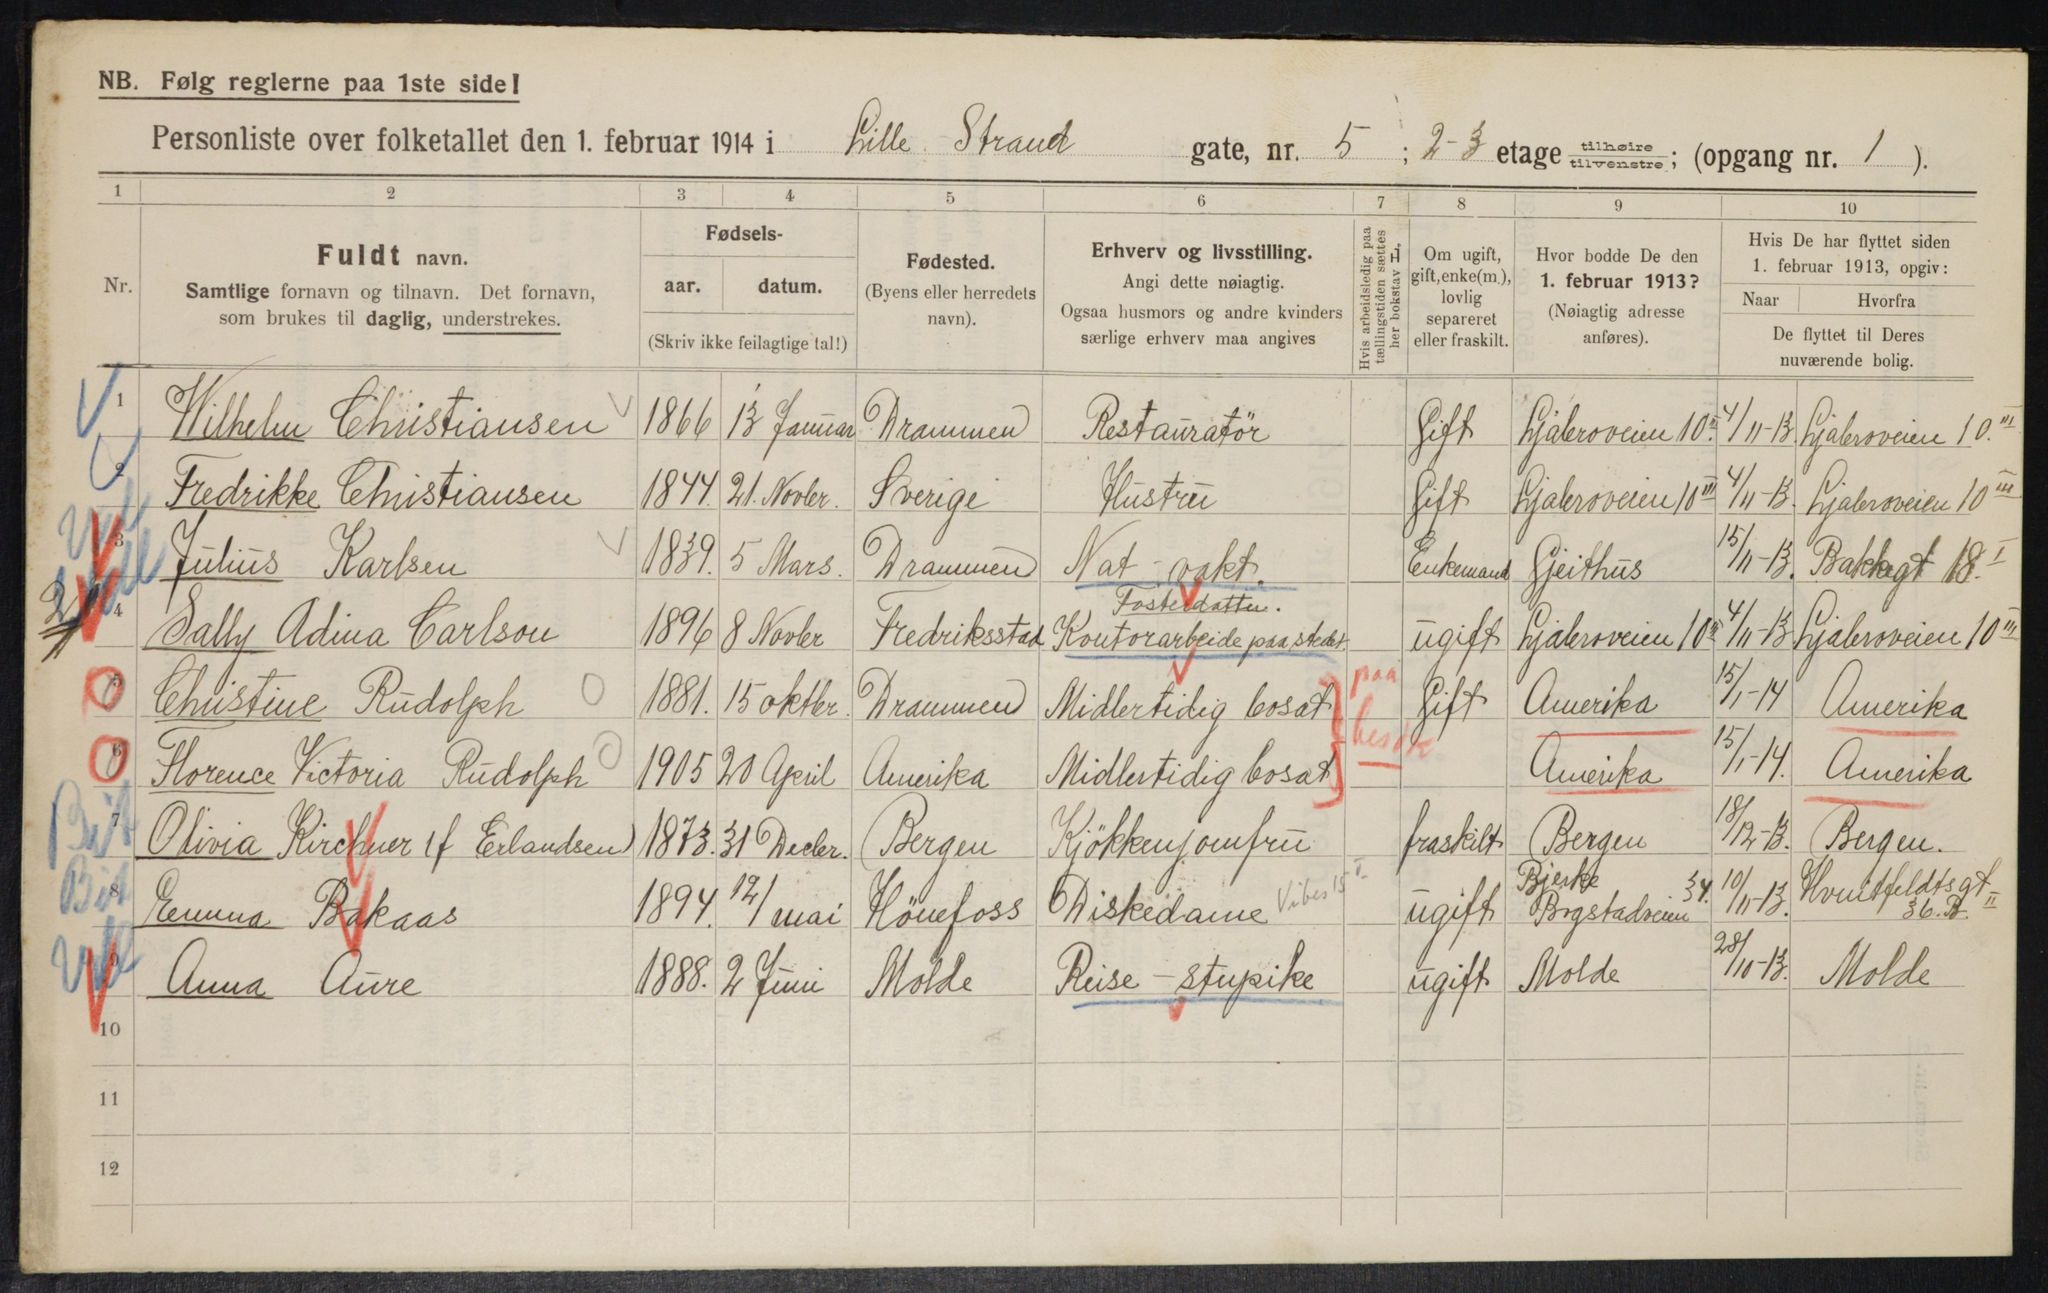 NB. Følg reglerne paa 1ste side!
Personliste over folketallet den 1. februar 1914 i Lille Strand gate, nr. 5 ; 2-3 etage tilhøire tilvenstre ; (opgang nr. 1 ).
1 2 3 4 5 6 7 8 9 10
Nr.
Fuldt navn.
Samtlige fornavn og tilnavn. Det fornavn,
som brukes til daglig, understrekes.
Fødsels-
aar. datum.
(Skriv ikke feilagtige tal!)
Fødested.
(Byens eller herredets
navn).
Erhverv og livsstilling.
Angi dette nøiagtig.
Ogsaa husmors og andre kvinders
særlige erhverv maa angives
Hvis arbeidsledig paa
tællingstiden sættes
her bokstav L.
Om ugift,
gift, enke(m.),
lovlig
separeret
eller fraskilt.
Hvor bodde De den
1. februar 1913?
(Nøiagtig adresse
anføres).
Hvis De har flyttet siden
1. februar 1913, opgiv:
Naar Hvorfra
De flyttet til Deres
nuværende bolig.
1 Wilhelm Christiansen 1866 13 Januar Drammen Restauratör Gift Ljabroveien 10 III 4/11-13 Ljabroveien 10 III
2 Fredrikke Christiansen 1844. 21. Novbr. Sverige Hustru Gift Ljabroveien 10 III 4/11-13. Ljabroveien 10 III
3 Julius Karlsen 1839. 5 Mars. Drammen Nat-vakt. Enkemand Gjeithus 15/11-13. Bakkegt 18. I
Fosterdatter.
4 Sally Adina Carlson 1896 8 Novbr Fredriksstad Kontorarbeide paa stedet. ugift Ljabroveien 10 III 4/11-13 Ljabroveien 10 III
5 Christine Rudolph 1881. 15 oktbr. Drammen Midlertidig bosat paa Gift Amerika 15/1-14 Amerika
besøk
6 Florence Victoria Rudolph 1905 20 April Amerika Midlertidig bosat Amerika 15/1-14. Amerika
7 Olivia Kirchner (f Erlandsen) 1873. 31 Decbr. Bergen Kjökkenjomfru fraskilt Bergen 18/12-13. Bergen.
8 Emma Bakaas 1894. 12/mai Hönefoss Diskedame Vibes 15 I ugift Bjerke Bogstadveien 34. 10/11-13. Hvitfeldtsgt 36. B. II
9 Anna Aure 1888. 2 Juni Molde Reise-stupike ugift Molde 28/10-13. Molde
10
11
12